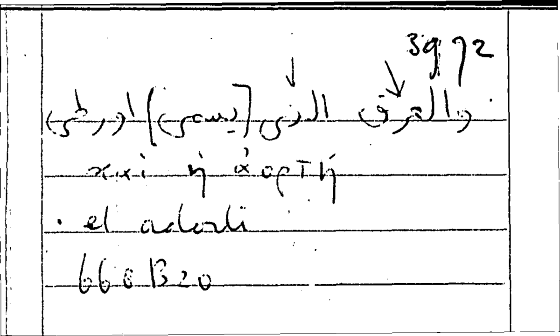 والعرق الذي [يسمى] اورطى
καὶ ἡ ἀορτὴ
. et adorti
668B20